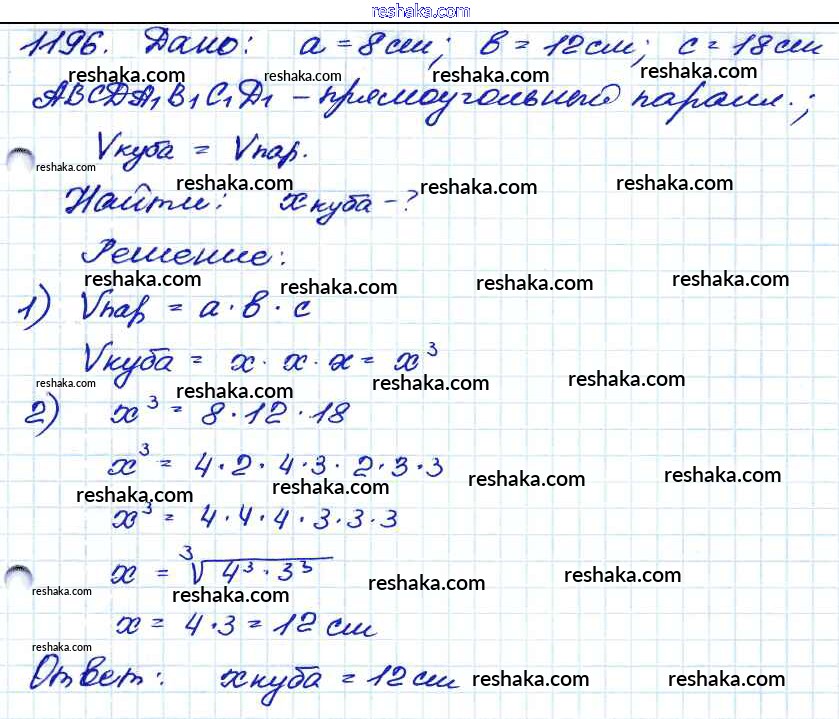 reshaka.com
1196. Дано: a = 8 см; в = 12 см; c = 18 см
reshaka.com reshaka.com reshaka.com reshaka.com
ABCDA₁B₁C₁D₁ – прямоугольный паралл.;
Vкуба = Vпар.
reshaka.com reshaka.com reshaka.com reshaka.com
Найти: xкуба – ?
Решение:
reshaka.com reshaka.com reshaka.com reshaka.com
1) Vпар = a · в · c
Vкуба = x · x · x = x³
reshaka.com reshaka.com reshaka.com reshaka.com
2) x³ = 8 · 12 · 18
x³ = 4 · 2 · 4 · 3 · 2 · 3 · 3
reshaka.com reshaka.com reshaka.com reshaka.com
x³ = 4 · 4 · 4 · 3 · 3 · 3
x = ³√4³ · 3³
reshaka.com reshaka.com reshaka.com reshaka.com
x = 4 · 3 = 12 см
reshaka.com reshaka.com reshaka.com reshaka.com
Ответ: xкуба = 12 см